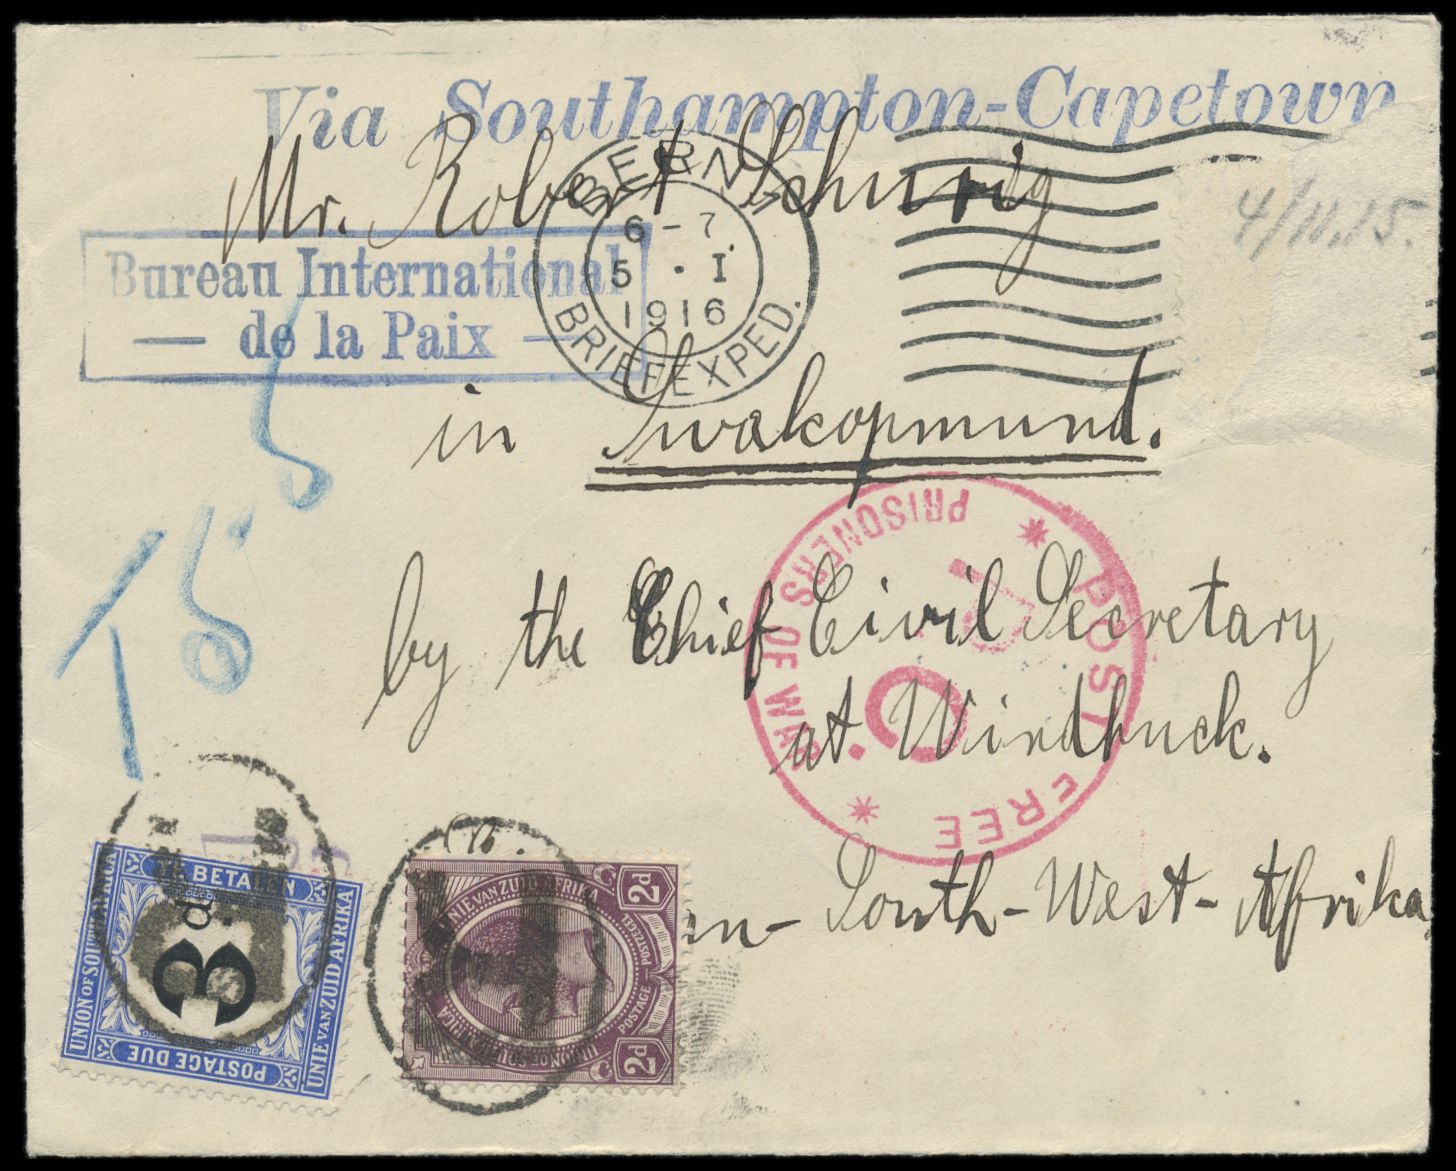 Via Southampton-Capetown
Mr. Robert Schurig
4/11.15.
Bureau International
— de la Paix —
BERN 1
6-7
5 . I
1916
BRIEFEXPED.
in Swakopmund.
POST FREE
PRISONERS OF WAR
P. C.
by the Chief Civil Secretary
at Windhuck.
T
South-West-Afrika
TE BETALEN
3d
UNION OF SOUTH AFRICA
UNIE VAN ZUID AFRIKA
POSTAGE DUE
UNIE VAN ZUID AFRIKA
2d
POSTZEGEL
POSTAGE
UNION OF SOUTH AFRICA
2d